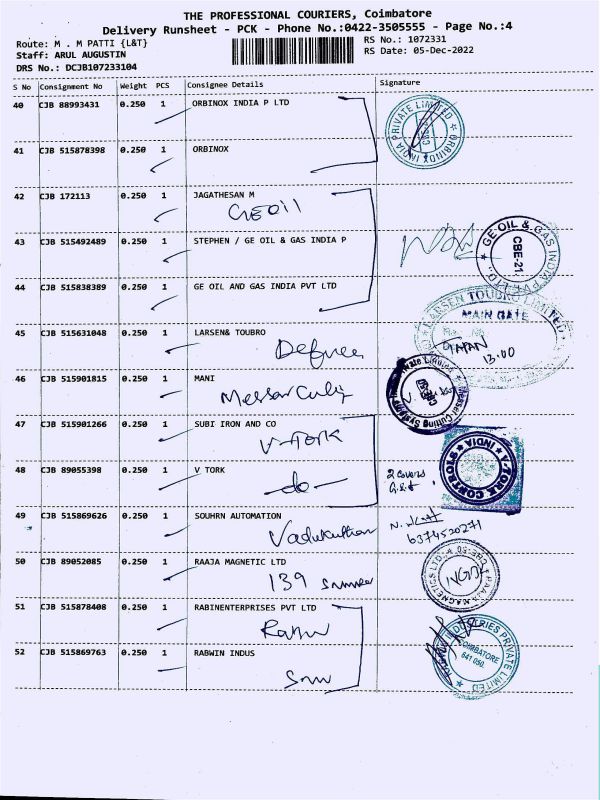 THE PROFESSIONAL COURIERS, Coimbatore
Delivery Runsheet - PCK - Phone No.:0422-3505555 - Page No.:4
Route: M . M PATTI {L&T}
RS No.: 1072331
Staff: ARUL AUGUSTIN
RS Date: 05-Dec-2022
DRS No.: DCJB107233104
S No Consignment No Weight PCS Consignee Details Signature
40 CJB 88993431 0.250 1 ORBINOX INDIA P LTD
ORBINOX INDIA PRIVATE LIMITED
41 CJB 515878398 0.250 1 ORBINOX
42 CJB 172113 0.250 1 JAGATHESAN M
GE Oil
43 CJB 515492489 0.250 1 STEPHEN / GE OIL & GAS INDIA P
GE OIL & GAS INDIA PVT LTD.
CBE-21
44 CJB 515838389 0.250 1 GE OIL AND GAS INDIA PVT LTD
LARSEN TOUBRO LIMITED
MAIN GATE
45 CJB 515631048 0.250 1 LARSEN& TOUBRO
Defence
13.00
46 CJB 515901815 0.250 1 MANI
Messer Cutting
Messer Cutting Systems Private Limited
47 CJB 515901266 0.250 1 SUBI IRON AND CO
V-Tork
V-TORK CONTROLS INDIA
48 CJB 89055398 0.250 1 V TORK
-do-
2 covers
49 CJB 515869626 0.250 1 SOUHRN AUTOMATION
6374520271
50 CJB 89052085 0.250 1 RAAJA MAGNETIC LTD
139
RAAJA MAGNETICS LTD.
51 CJB 515878408 0.250 1 RABINENTERPRISES PVT LTD
INDUSTRIES PRIVATE LIMITED
COIMBATORE
641 050.
52 CJB 515869763 0.250 1 RABWIN INDUS